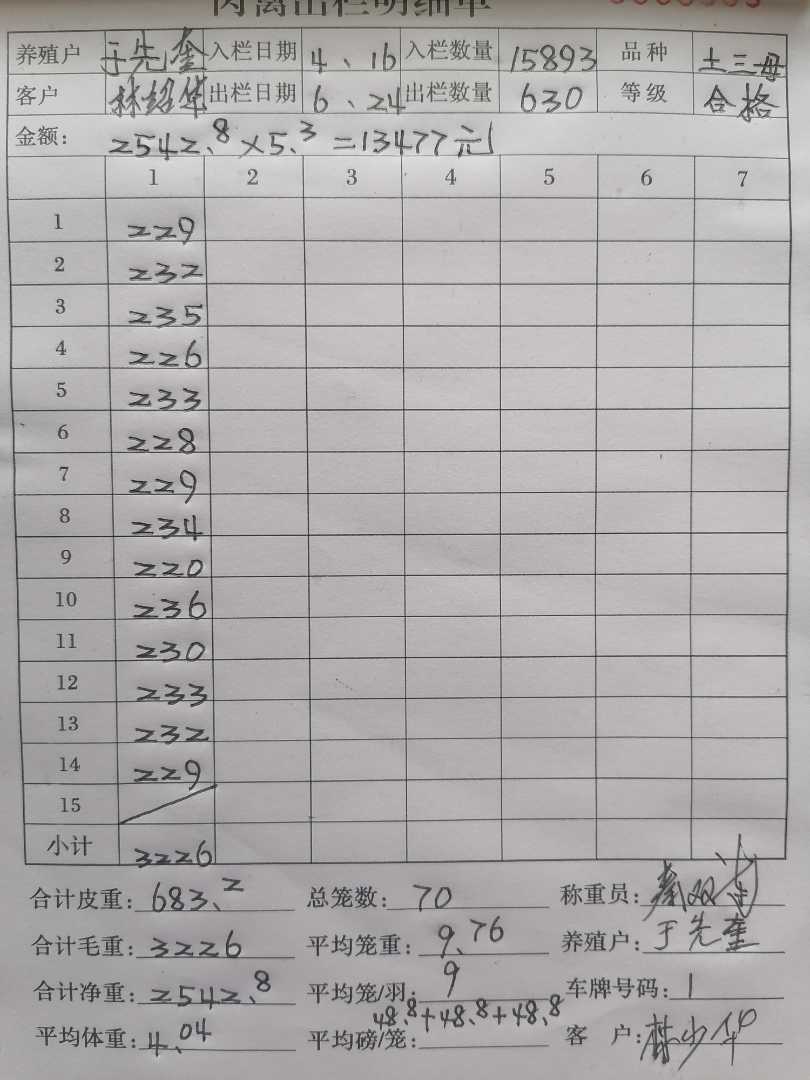 肉禽出栏明细单
养殖户 于先奎 入栏日期 4、16 入栏数量 15893 品种 土三母
客户 林绍华 出栏日期 6、24 出栏数量 630 等级 合格
金额: 2542.8×5.3=13477元
1 2 3 4 5 6 7
1 229
2 232
3 235
4 226
5 233
6 228
7 229
8 234
9 220
10 236
11 230
12 233
13 232
14 229
15
小计 3226
合计皮重: 683.2 总笼数: 70 称重员:
合计毛重: 3226 平均笼重: 9.76 养殖户: 于先奎
合计净重: 2542.8 平均笼/羽: 9 车牌号码: 1
平均体重: 4.04 平均磅/笼: 48.8+48.8+48.8 客 户: 林少华